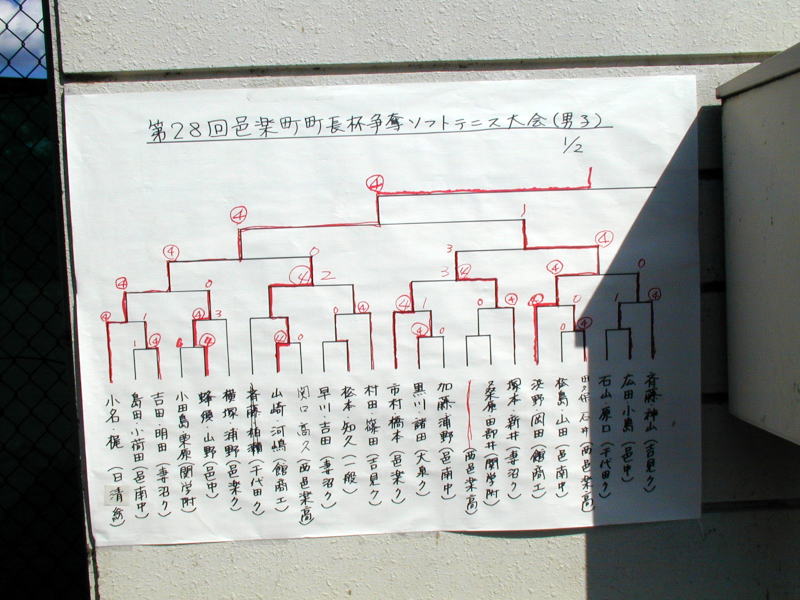 第28回邑楽町町長杯争奪ソフトテニス大会(男子)
1/2
④
④ 1
④ 0 3 ④
④ 0 ④ 2 3 ④ ④ 0
④ 1 ④ 3 ④ ④ 1 0 ④ ④ 0 1 ④
1 ④ ④ ④ 0 0 ④ 0 0 ④
小名・梶 (日清紡)
島田・小荷田 (邑南中)
吉田・明田 (妻沼ク)
小田島 栗原 (関学附)
山野 (邑中)
横塚・浦野 (邑楽ク)
(千代田ク)
山崎・河嶋 (館商工)
関口 高久 (西邑楽高)
早川・吉田 (妻沼ク)
松本 知久 (一般)
村田 篠田 (吉見ク)
市村 橋本 (邑楽ク)
黒川・諸田 (大泉ク)
加藤 浦野 (邑南中)
(西邑楽高)
桑原田 郡井 (関学附)
塚本・新井 (妻沼ク)
荻野 岡田 (館商工)
松島・山田 (邑南中)
石井 (西邑楽高)
石山 原口 (千代田ク)
広田 小島 (邑中)
斉藤 神山 (吉見ク)